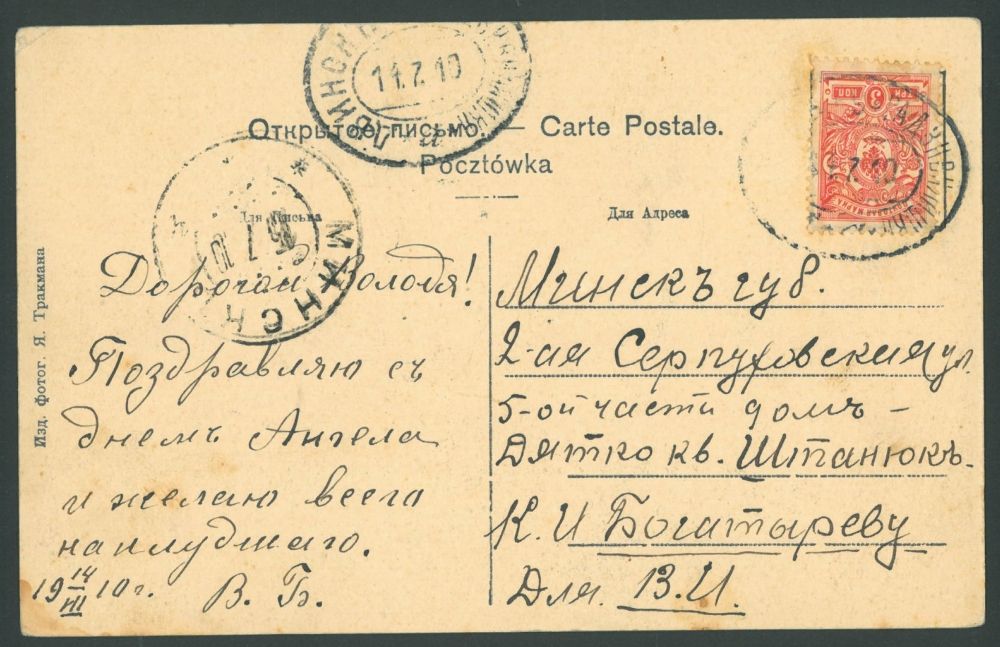 Открытое письмо. — Carte Postale.
Pocztówka
Для Письма
Для Адреса
Изд. фотог. Я. Тракмана
11.7.10
МИНСК
3 КОП
7.10
Дорогой Володя!
Поздравляю съ
днемъ Ангела
и желаю всего
наилудшаго.
19 14/VII 10 г. В. Б.
Минскъ губ.
2-ая Серпуховская ул.
5-ой части домъ –
Дятко кв. Штанюкъ.
К. И Богатыреву
Для. В. И.